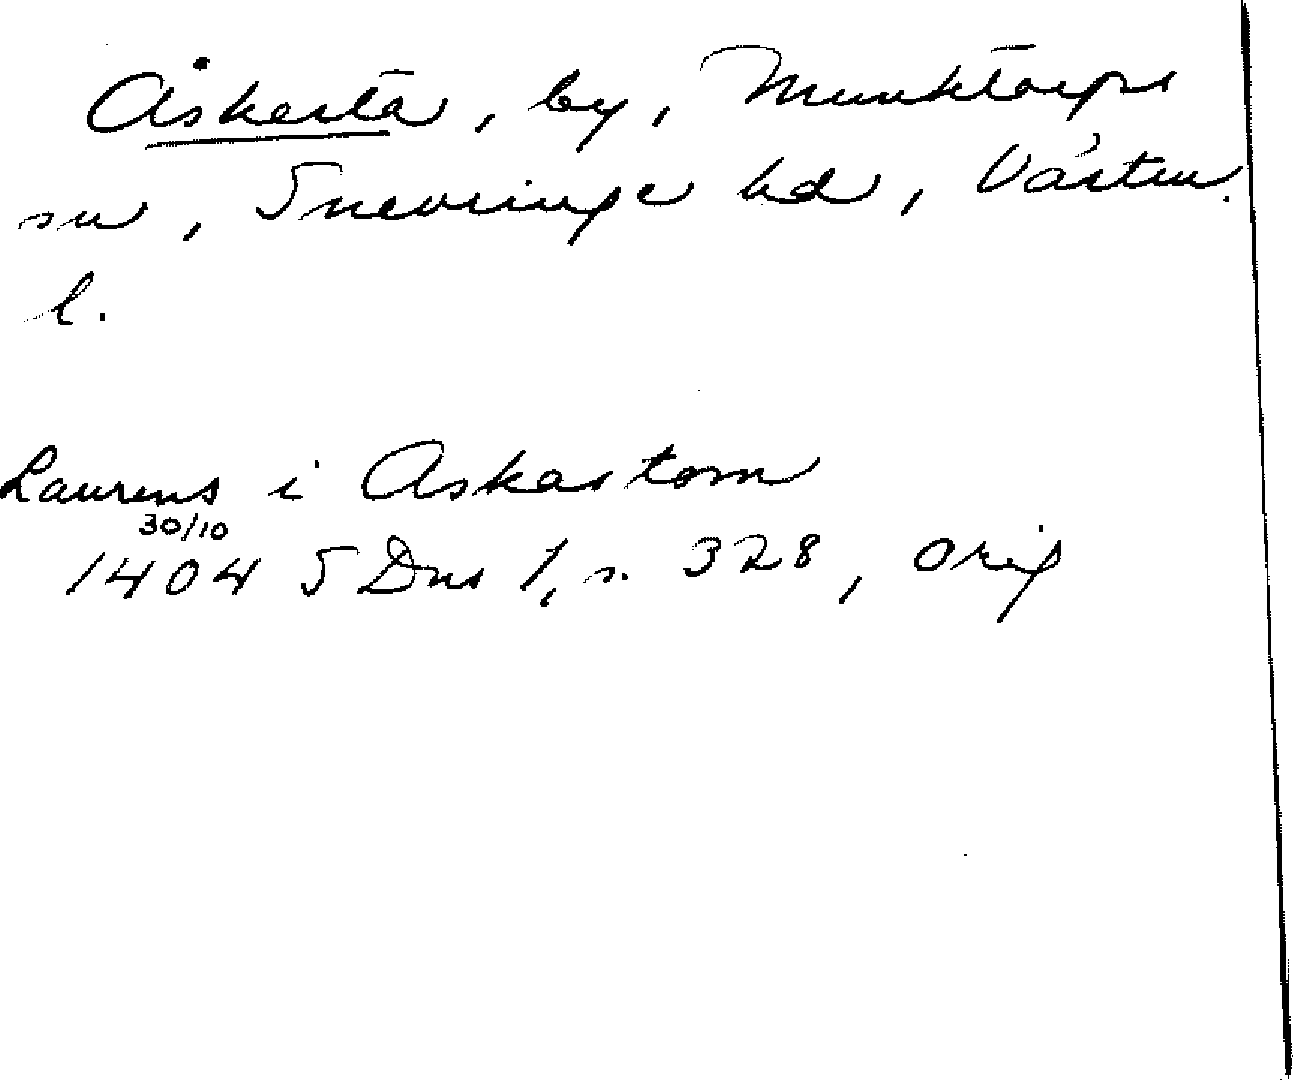 Åskesta, by, Munktorps
sn, Snevringe hd, Västm.
l.
Laurens i Askastom
30/10
1404 SDns 1, s. 328, orig